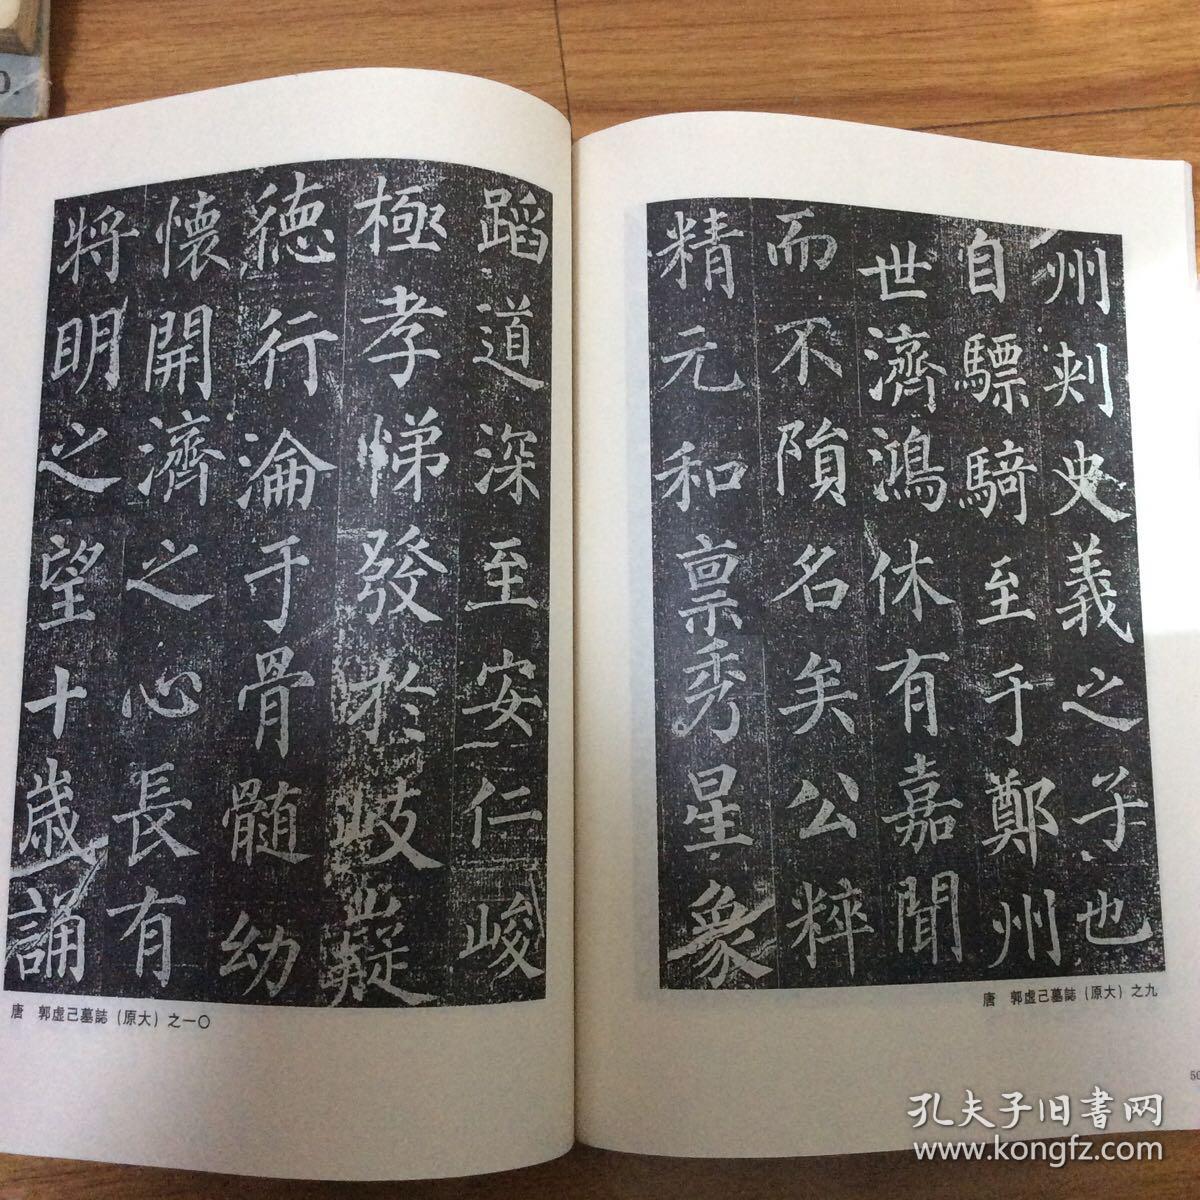 州刾史義之子也
自驃騎至于鄭州
世濟鴻休有嘉聞
而不隕名矣公粹
精元和稟秀星象
唐　郭虚己墓誌（原大）之九
蹈道深至安仁峻
極孝悌發於岐嶷
德行淪于骨髓幼
懷開濟之心長有
將明之望十歲誦
唐　郭虚己墓誌（原大）之一〇
孔夫子旧書网
www.kongfz.com